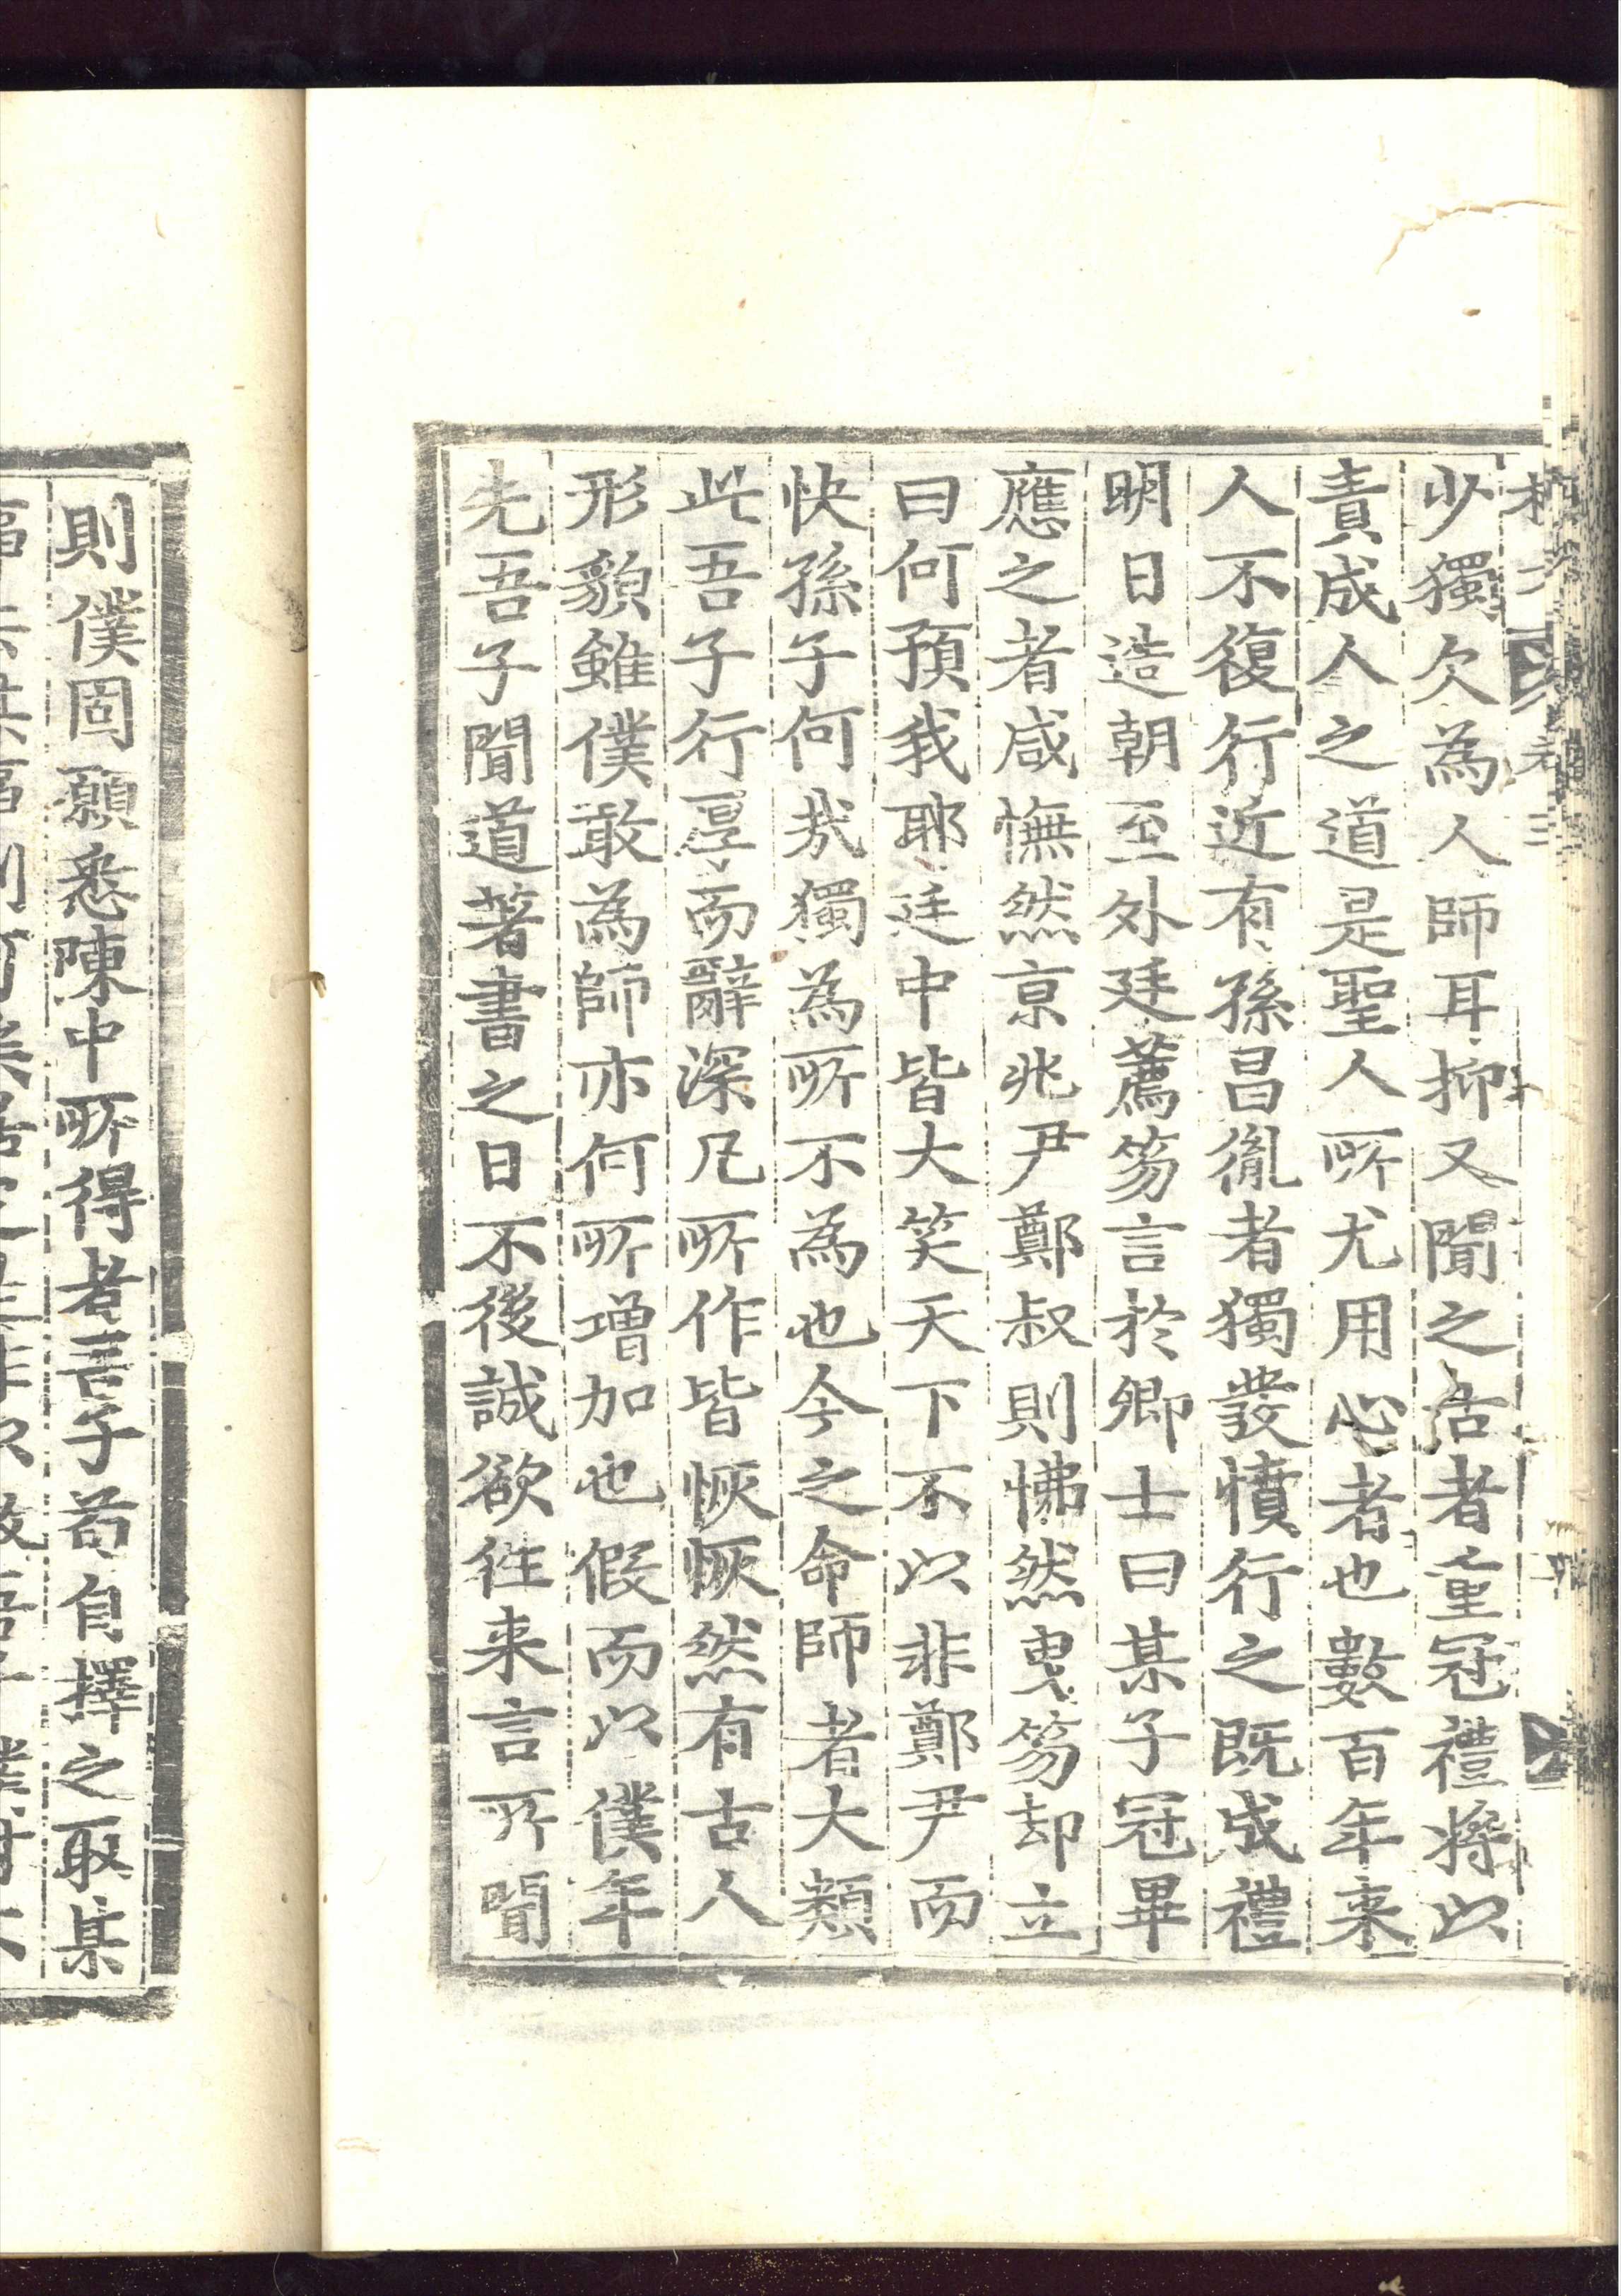 少獨欠為人師耳抑又聞之古者重冠禮將以
責成人之道是聖人所尤用心者也數百年来
人不復行近有孫昌胤者獨發憤行之既成禮
明日造朝至外廷薦笏言於卿士曰某子冠畢
應之者咸憮然京兆尹鄭叔則怫然曳笏却立
曰何預我耶廷中皆大笑天下不以非鄭尹而
快孫子何哉獨為所不為也今之命師者大類
此吾子行厚而辭深凡所作皆恢恢然有古人
形貌雖僕敢為師亦何所增加也假而以僕年
先吾子聞道著書之日不後誠欲徃来言所聞
則僕固願悉陳中所得者吾子苟自擇之取某